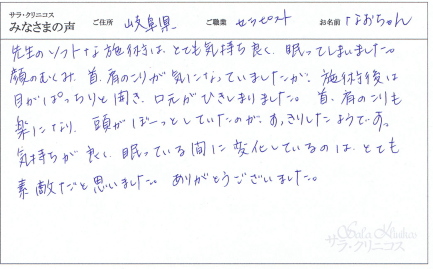 サラ・クリニコス
みなさまの声 ご住所 岐阜県 ご職業 セラピスト お名前 なおちゃん
先生のソフトな施術は、とても気持ち良く、眠ってしまいました。
顔のむくみ、首、肩のこりが気になっていましたが、施術後は
目がぱっちりと開き、口元がひきしまりました。 首、肩のこりも
楽になり、頭がぼーっとしていたのが、すっきりしたようです。
気持ちが良く、眠っている間に変化しているのは、とても
素敵だと思いました。 ありがとうございました。
サラ・クリニコス